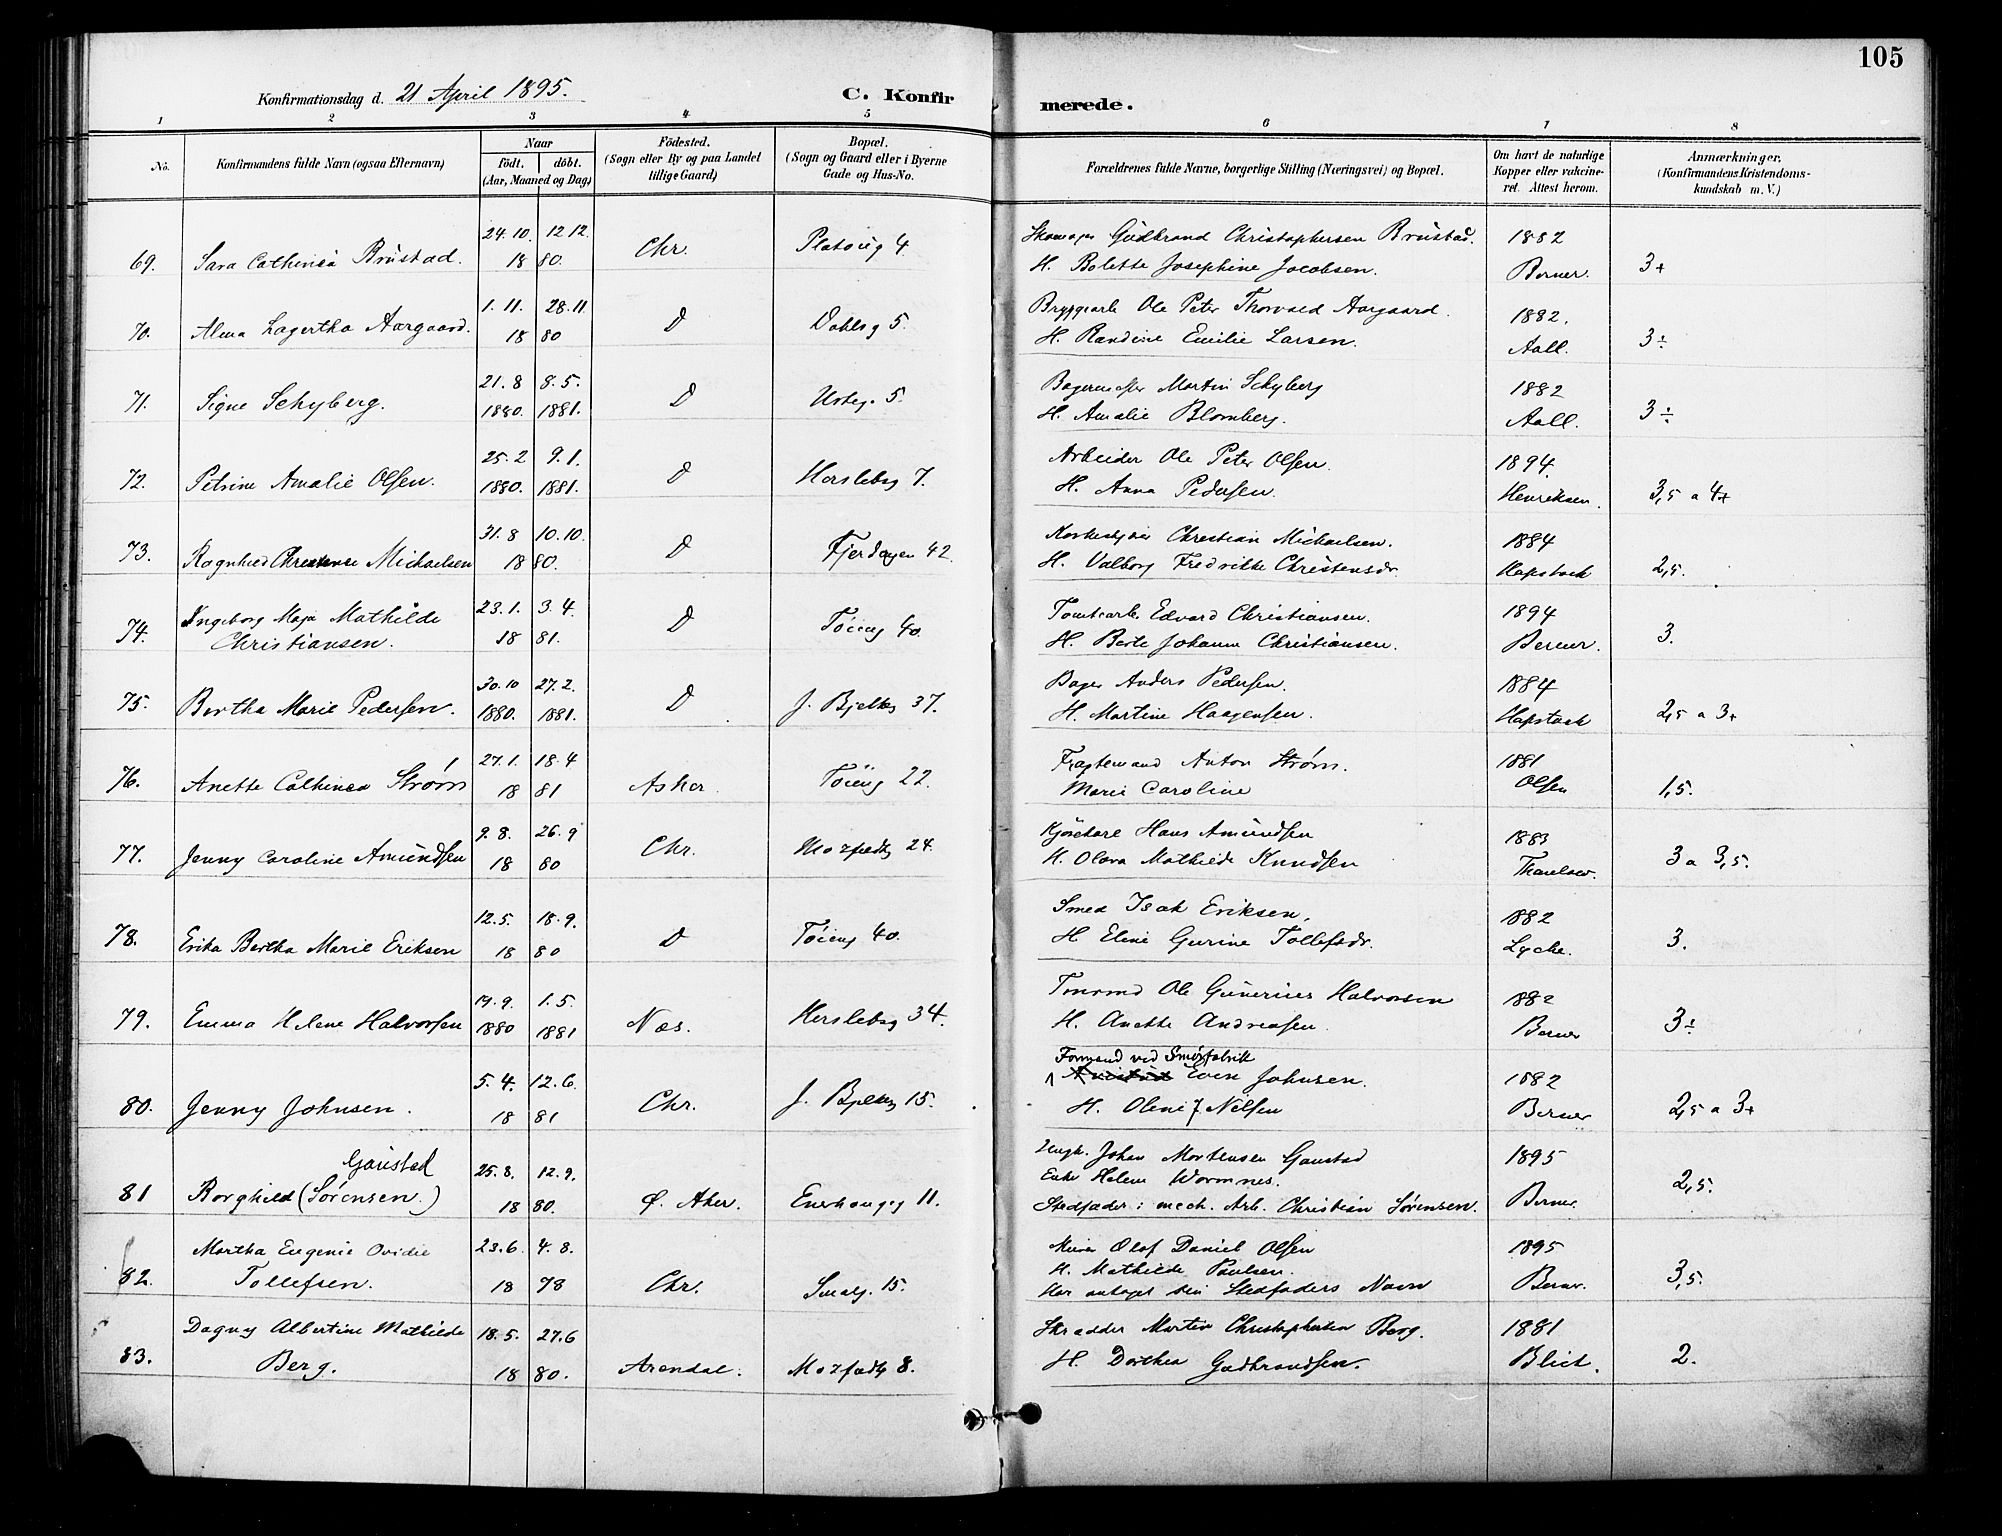 105
Konfirmationsdag d. 21 April 1895.
C. Konfir
merede.
1 2 3 4 5 6 7 8
No. Konfirmandens fulde Navn (ogsaa Efternavn)
Naar
födt. döbt.
(Aar, Maaned og Dag)
Födested.
(Sogn eller By og paa Landet
tillige Gaard)
Bopæl.
(Sogn og Gaard eller i Byerne
Gade og Hus-No.
Forældrenes fulde Navne, borgerlige Stilling (Næringsvei) og Bopæl.
Om havt de naturlige
Kopper eller vakcine-
ret. Attest herom.
Anmærkninger.
(Konfirmandens Kristendoms-
kundskab m. V.)
24.10. 12.12. Skomager Gudbrand Christophersen Brustad. 1882
69. Sara Cathinca Brustad. 18 80. Chr. Platoug 4 H. Bolette Josephine Jacobsen. Berner. 3+
1.11. 28.11 Bryggearb Ole Peter Thorvald Aargaard. 1882.
70. Alma Lagertha Aargaard. 18 80 D Dahls g 5. H. Randine Emilie Larsen. Aall. 3÷
21.8 8.5. Bagermester Martin Schyberg 1882
71. Signe Schyberg. 1880. 1881. D Urteg. 5. H. Amalie Blomberg. Aall. 3÷
25.2 9.1. Arbeider Ole Peter Olsen. 1894.
72. Petrine Amalie Olsen. 1880. 1881. D Herslebsg 7. H. Anna Pedersen. Henriksen. 3,5 a 4+
31.8 10.10. Christian Michaelsen. 1884
73. Ragnhild Christense Michaelsen 18 80. D Fjerdingen 42 H. Valborg Fredrikke Christensdr. Hapstock 2,5.
23.1. 3.4. Tomtearb. Edvard Christiansen. 1894
74. Ingeborg Maja Mathilde
Christiansen. 18 81. D Töieng 40. H. Berte Johanne Christiansen. Berner. 3.
30.10 27.2. Bager Anders Pedersen. 1884
75. Bertha Marie Pedersen. 1880. 1881. D J. Bjelkes 37. H. Martine Haagensen. Hapstock 2,5 a 3+
27.1. 18.4 Fragtemand Anton Strøm. 1881
76. Anette Cathinca Strøm 18 81 Asker. Töieng 22. Marie Caroline Olsen 1,5.
9.8. 26.9 Kjørekarl Hans Amundsen 1883
77. Jenny Caroline Amundsen 18 80 Chr. Motzfeldtg 24. H. Olava Mathilde Knudsen Thaulow. 3 a 3,5.
12.5. 18.9. Smed Isak Eriksen. 1882
78. Erika Bertha Marie Eriksen 18 80 D Töieng 40. H Eline Gurine Tollefsdr. Lyche. 3.
19.9. 1.5. Tmrmd Ole Gunerius Halvorsen 1882
79. Emma Helene Halvorsen 1880 1881 Næs. Herslebsg 34. H. Anette Andreasen. Berner 3÷
Formand ved Smørfabrik
5.4. 12.6. Even Johnsen. 1882
80. Jenny Johnsen. 18 81 Chr. J. Bjelkes 15. H. Oline J Nilsen Berner 2,5 a 3+
Gaustad 25.8. 12.9. Ungk. Johan Mortensen Gaustad 1895
81 Borghild (Sørensen.) 18 80. Ø. Aker. Enerhougg 11. Enke Helene Wormnes. 2,5.
Stedfader: mech. Arb. Christian Sørensen. Berner.
Martha Eugenie Ovidie 23.6. 4.8. Murer Olaf Daniel Olsen 1895
82. Tollefsen. 18 78 Chr. Smalg. 15. H. Mathilde Paulsen. Berner. 3,5.
Har antaget sin Stedfaders Navn
Dagny Albertine Mathilde 18.5. 27.6 Skrædder Martin Christophersen Berg. 1881
83. Berg. 18 80. Arendal. Motzfeldtg 8. H. Dorthea Gudbrandsen. Blict. 2.